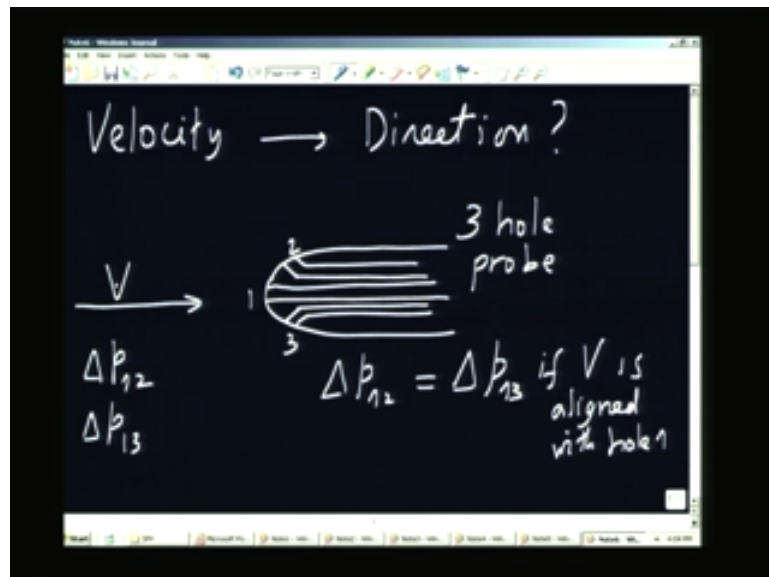 Note6 - Windows Journal
Edit View Insert Actions Tools Help
Velocity → Direction?
3 hole
probe
V
1
2
3
Δp₁₂
Δp₁₃
Δp₁₂ = Δp₁₃ if V is
aligned
with hole 1
Start